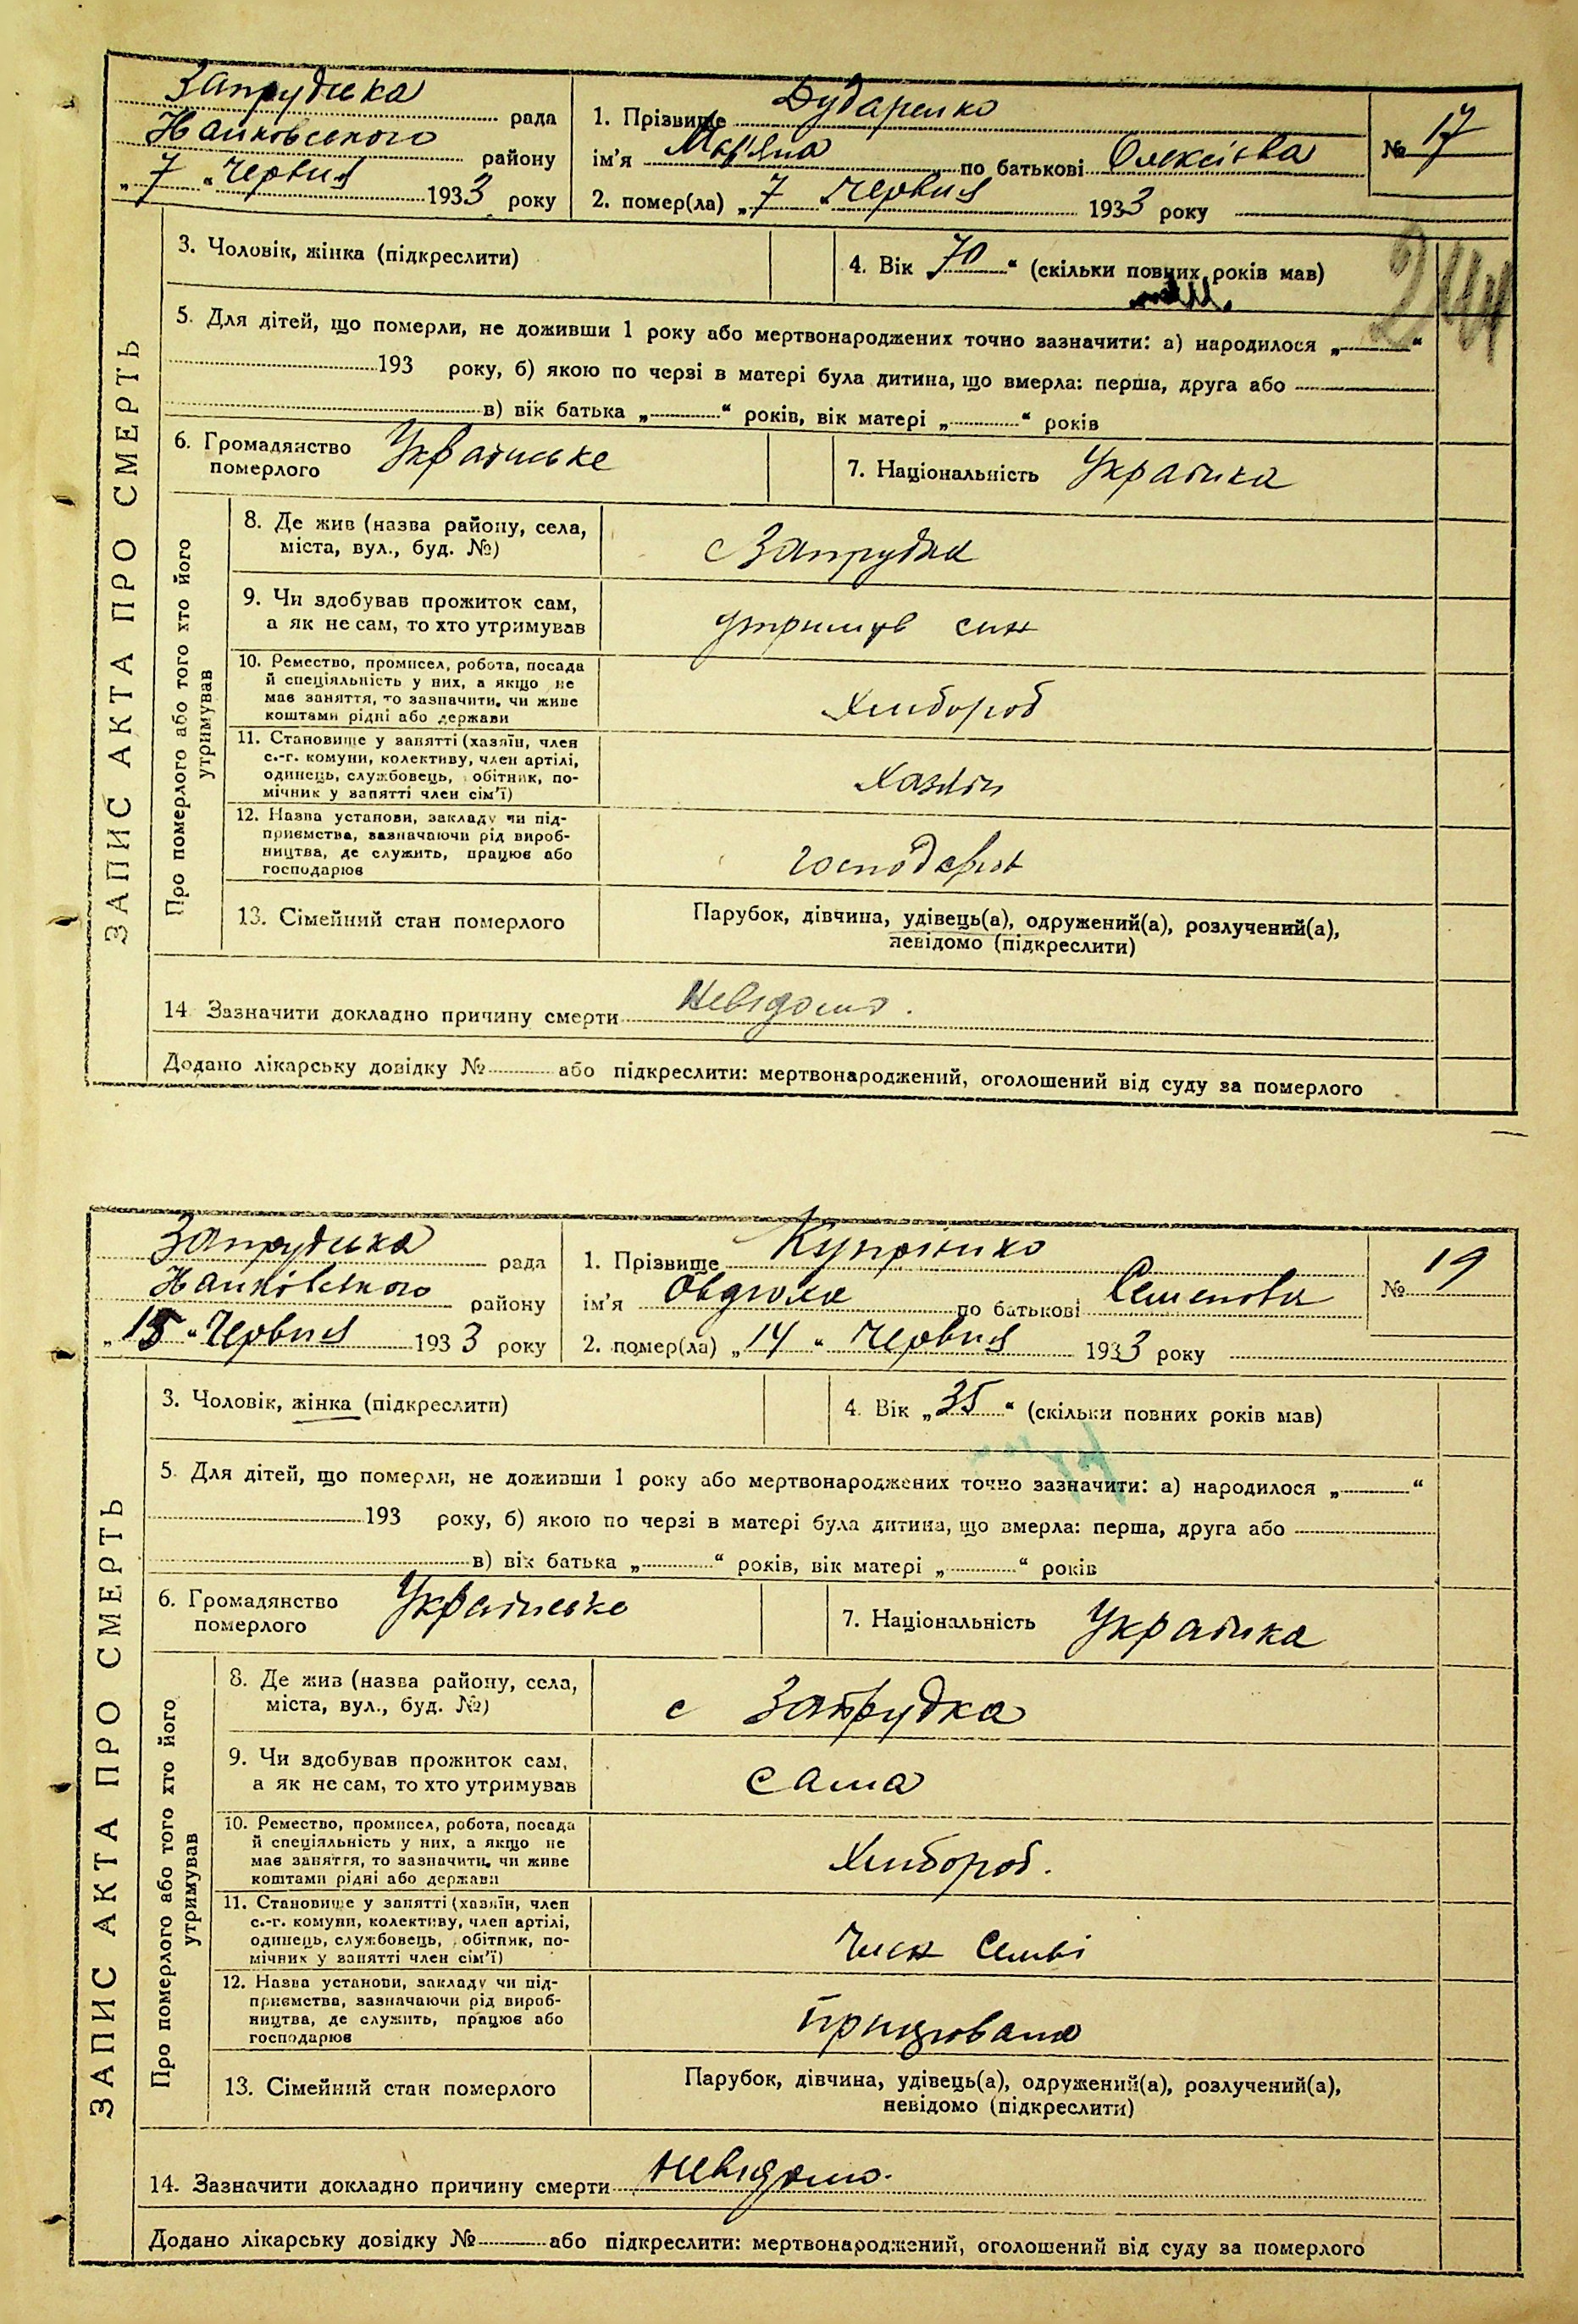 ЗАПИС АКТА ПРО СМЕРТЬ
Запрудська рада
району
„7“ Червня 1933 року
1. Прізвище Дударенко
ім'я Мар'яна по батькові Олексіівна
2. помер(ла) „7“ Червня 1933 року
№ 17
244
3. Чоловік, жінка (підкреслити)
4. Вік „70“ (скільки повних років мав)
5. Для дітей, що померли, не доживши 1 року або мертвонароджених точно зазначити: а) народилося „ “
193 року, б) якою по черзі в матері була дитина, що вмерла: перша, друга або
в) вік батька „ “ років, вік матері „ “ років
6. Громадянство
померлого Українське
7. Національність Українка
Про померлого або того хто його
утримував
8. Де жив (назва району, села,
міста, вул., буд. №)
с Запрудка
9. Чи здобував прожиток сам,
а як не сам, то хто утримував
утримував син
10. Ремество, промисел, робота, посада
й спеціяльність у них, а якщо не
має заняття, то зазначити, чи живе
коштами рідні або держави
Хлібороб
11. Становище у занятті (хазяїн, член
с.-г. комуни, колективу, член артілі,
одинець, службовець, обітник, по-
мічник у занятті член сім'ї)
Хазяін
12. Назва установи, закладу чи під-
приємства, зазначаючи рід вироб-
ництва, де служить, працює або
господарює
13. Сімейний стан померлого
Парубок, дівчина, удівець(а), одружений(а), розлучений(а),
невідомо (підкреслити)
14 Зазначити докладно причину смерти Невідомо.
Додано лікарську довідку № або підкреслити: мертвонароджений, оголошений від суду за померлого
ЗАПИС АКТА ПРО СМЕРТЬ
Запрудська рада
району
„15“ Червня 1933 року
1. Прізвище
ім'я по батькові Семенова
2. помер(ла) „14“ Червня 1933 року
№ 19
3. Чоловік, жінка (підкреслити)
4. Вік „35“ (скільки повних років мав)
5. Для дітей, що померли, не доживши 1 року або мертвонароджених точно зазначити: а) народилося „ “
193 року, б) якою по черзі в матері була дитина, що вмерла: перша, друга або
в) вік батька „ “ років, вік матері „ “ років
6. Громадянство
померлого Українсько
7. Національність Українка
Про померлого або того хто його
утримував
8. Де жив (назва району, села,
міста, вул., буд. №)
с Запрудка
9. Чи здобував прожиток сам,
а як не сам, то хто утримував
сама
10. Ремество, промисел, робота, посада
й спеціяльність у них, а якщо не
має заняття, то зазначити, чи живе
коштами рідні або держави
Хлібороб.
11. Становище у занятті (хазяїн, член
с.-г. комуни, колективу, член артілі,
одинець, службовець, обітник, по-
мічник у занятті член сім'ї)
Член Семьі
12. Назва установи, закладу чи під-
приємства, зазначаючи рід вироб-
ництва, де служить, працює або
господарює
працювала
13. Сімейний стан померлого
Парубок, дівчина, удівець(а), одружений(а), розлучений(а),
невідомо (підкреслити)
14. Зазначити докладно причину смерти невідомо.
Додано лікарську довідку № або підкреслити: мертвонароджений, оголошений від суду за померлого